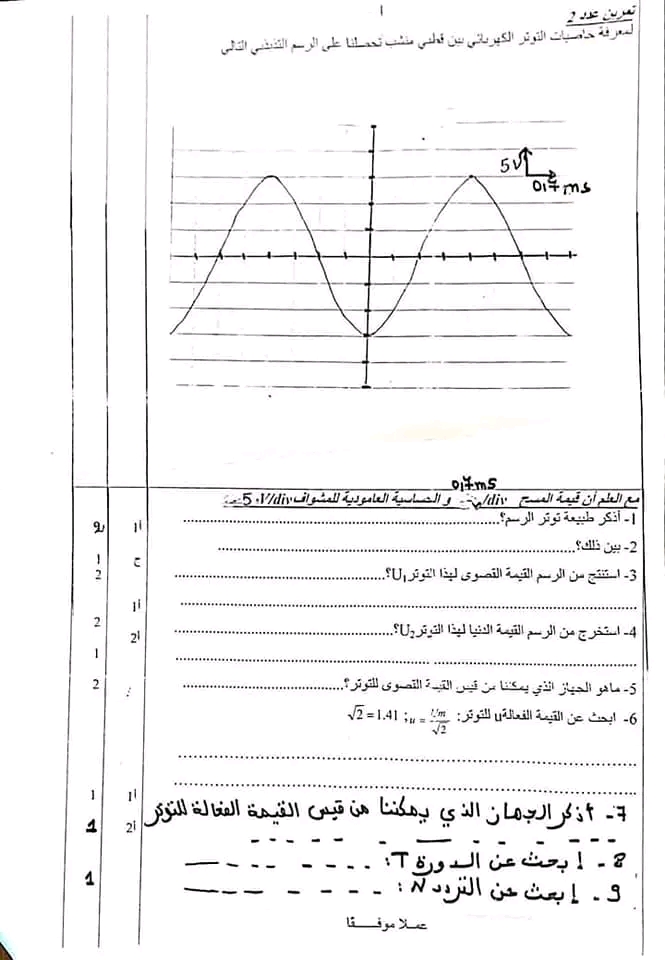 تمرين عدد 2
لمعرفة خاصيات التوتر الكهربائي بين قطبي منشب تحصلنا على الرسم التذبذبي التالي
5V
0,7 ms
0,7 ms
مع العلم أن قيمة المسح /div و الحساسية العامودية للمشواف 5 V/div
1- أذكر طبيعة توتر الرسم؟.......... أ1
2- بين ذلك؟.......... ج 1
3- استنتج من الرسم القيمة القصوى لهذا التوتر U1؟.......... 2
.......... أ1
4- استخرج من الرسم القيمة الدنيا لهذا التوتر U2؟.......... أ2 2
.......... 1
5- ماهو الجهاز الذي يمكننا من قيس القيمة القصوى للتوتر؟.......... 2
6- ابحث عن القيمة الفعالة u للتوتر: u = Um/√2 ; √2 = 1.41
..........
.......... أ1 1
7- أذكر الجهاز الذي يمكننا من قيس القيمة الفعالة للتوتر أ2 1
8- ابحث عن الدورة T: - - - -
9- ابحث عن التردد N: - - - - 1
عملا موفـــقا